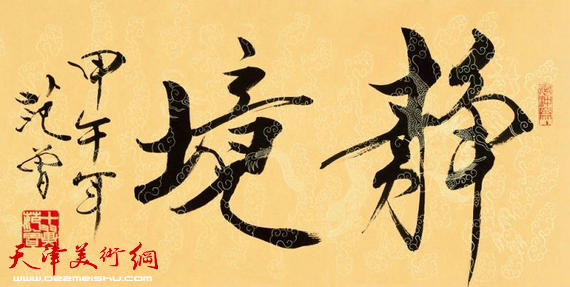 靜境
甲午年
范曾
天津美術網
www.026meishu.com